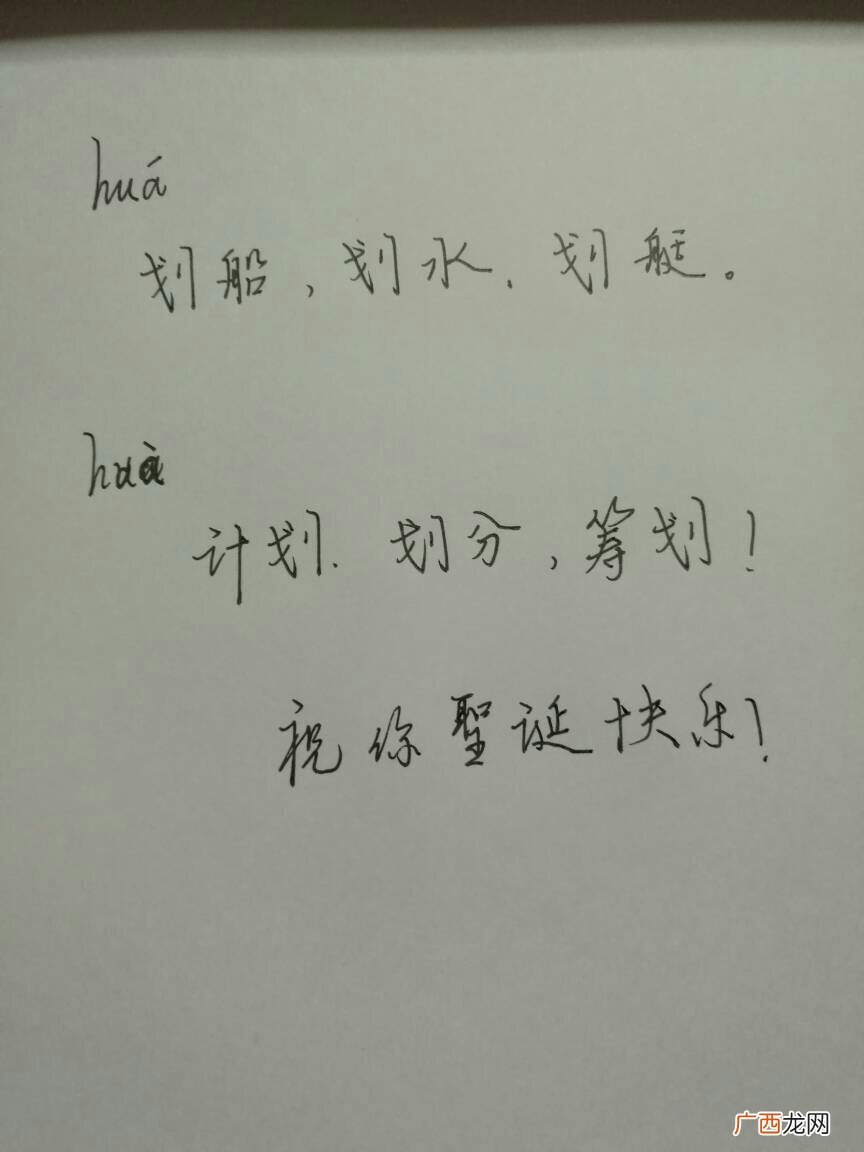 huá
划船,划水、划艇。
huà
计划、划分,筹划!
祝你聖诞快乐!
广西龙网